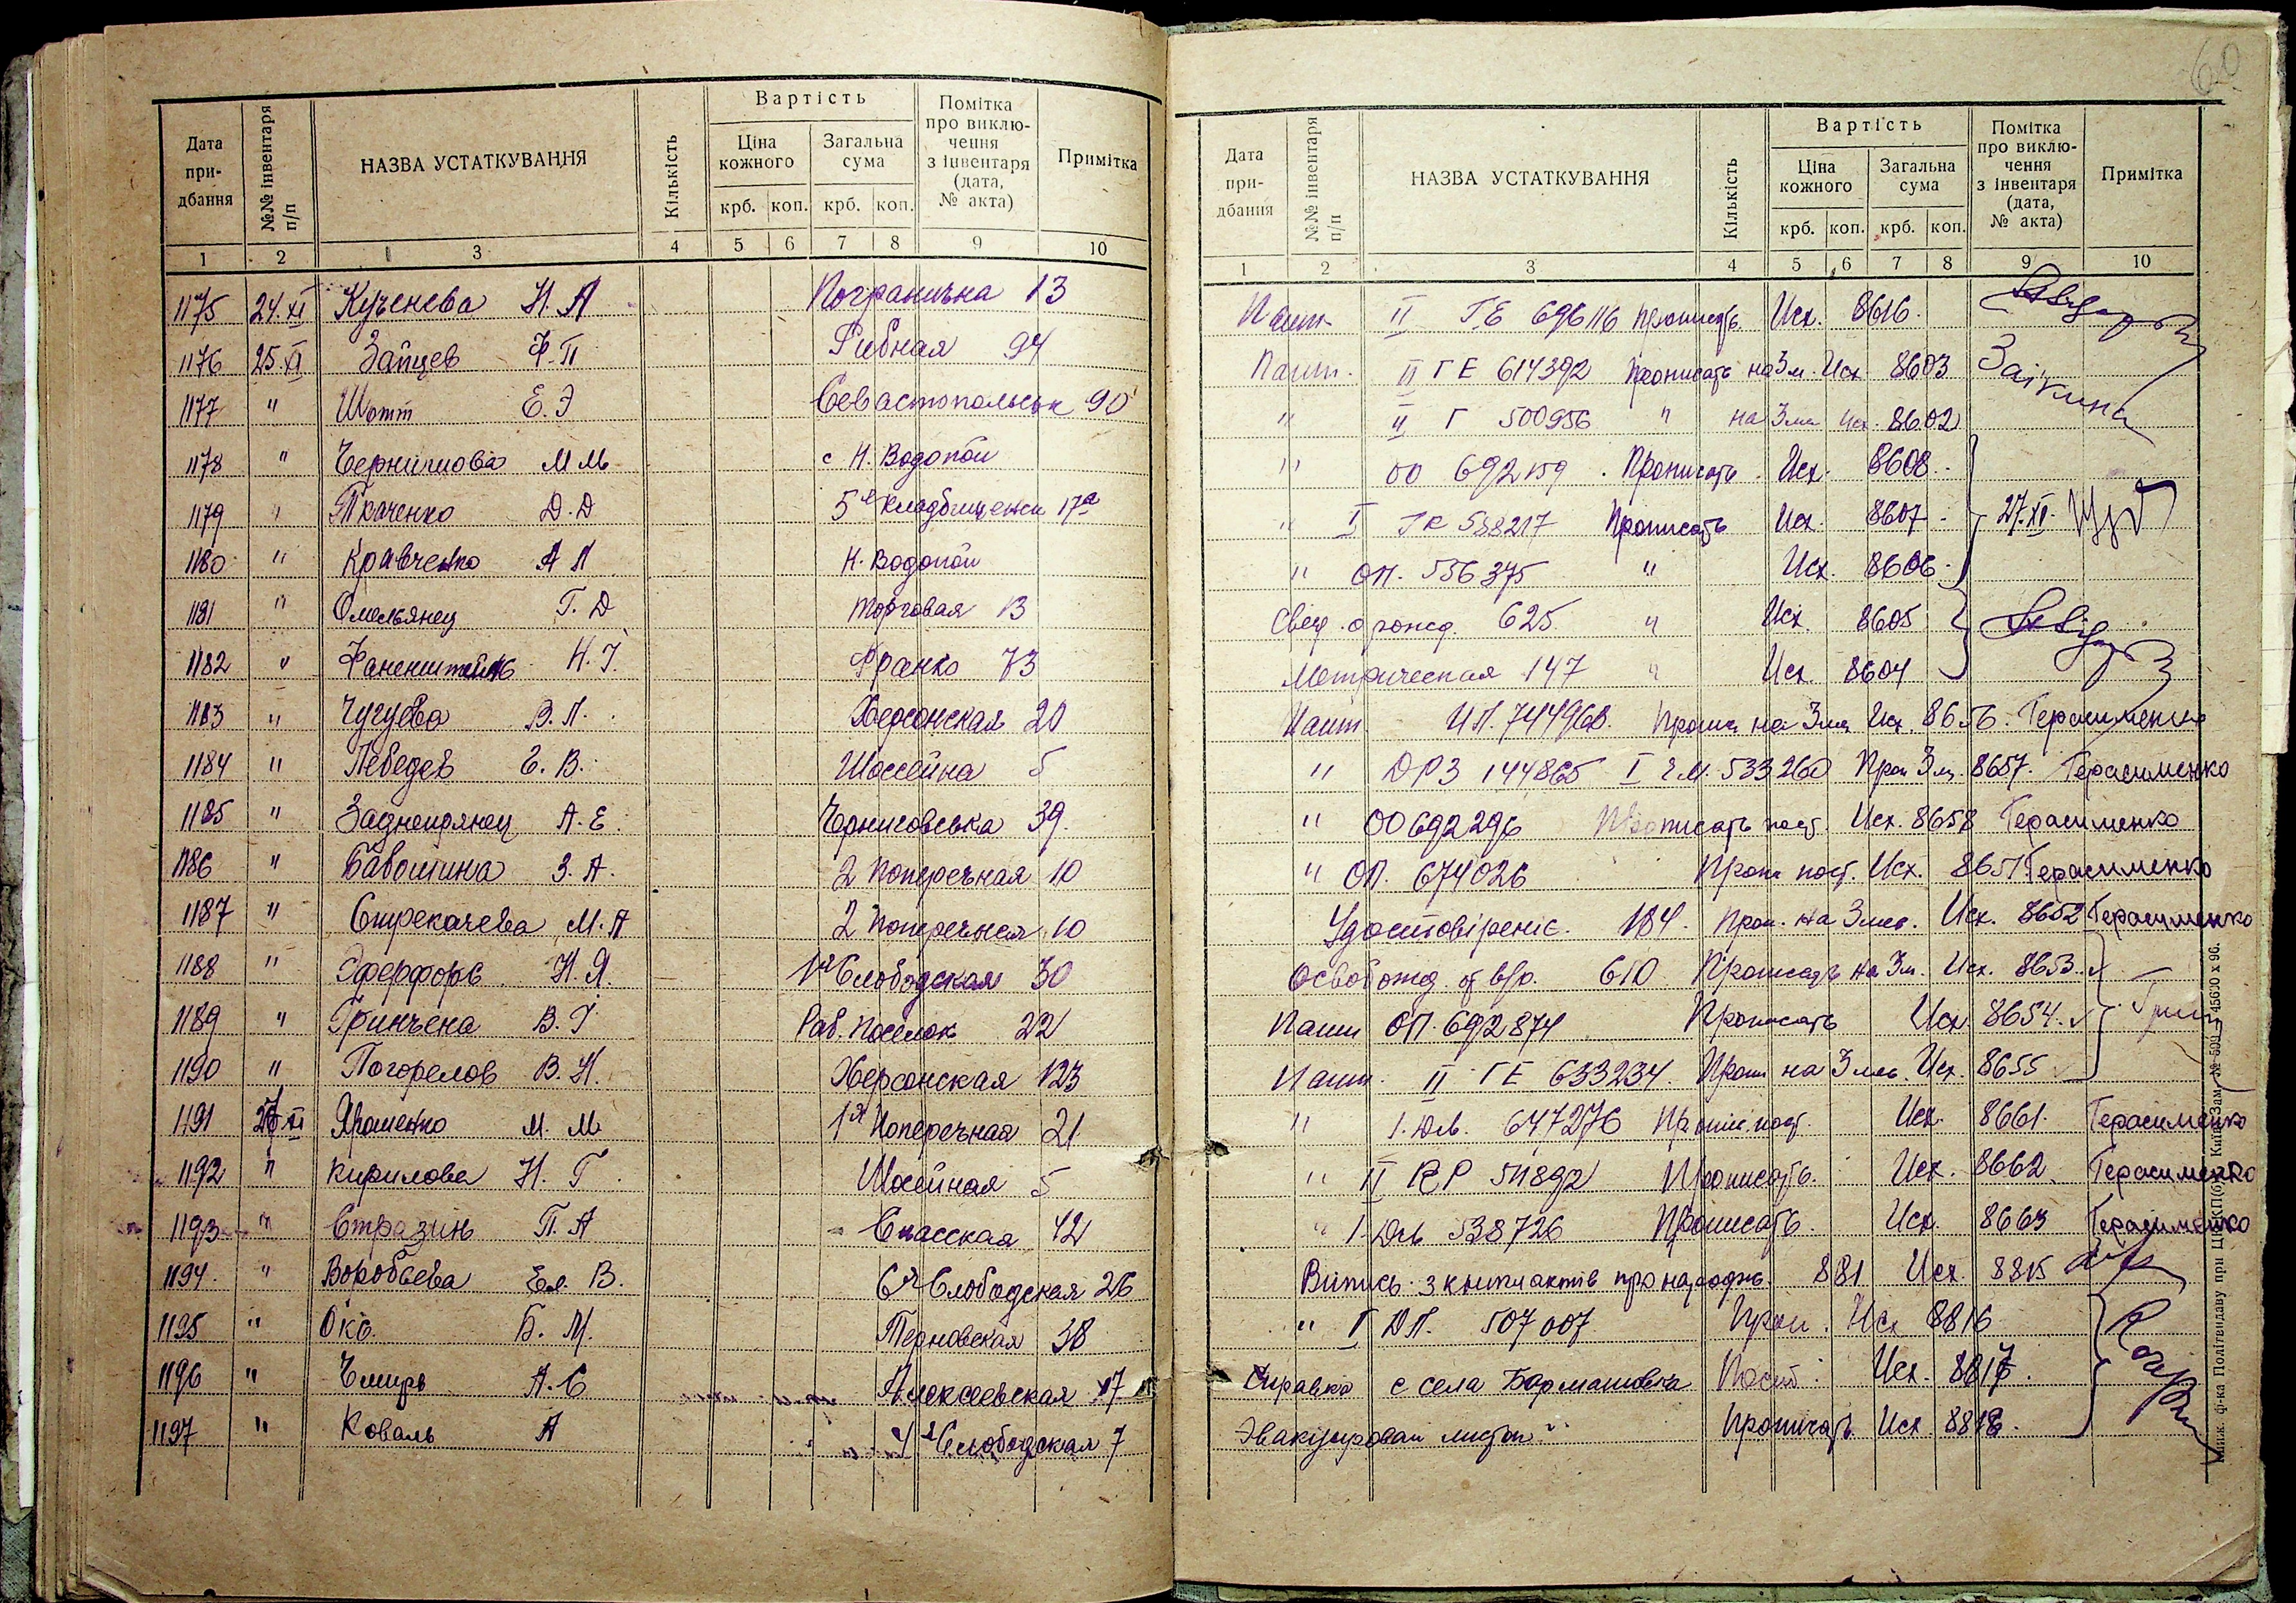 Дата при- дбання №№ інвентаря п/п НАЗВА УСТАТКУВАННЯ Кількість Вартість Ціна кожного Загальна сума крб. коп. крб. коп. Помітка про виклю- чення з інвентаря (дата, № акта) Примітка
1 2 3 4 5 6 7 8 9 10
1175 24.XI Кученева Н. А Погранична 13
1176 25.XI Зайцев Ф. П Рибная 94
1177 " Шотт Е. Э Севастопольськ 90
1178 " М М с Н. Водопой
1179 " Ткаченко Д. Д 5ᵃ 17ᵃ
1180 " Кравченко А П Н. Водопой
1181 " Омельянец Г. Д Торговая 13
1182 " Н. Г. Франко 73
1183 " Чугуева В. П. Херсонская 20
1184 " Лебедев Е. В. Шоссейна 5
1185 " Заднепрянец А. Е. Черниговська 39.
1186 " З. А. 2 Поперечная 10
1187 " Стрекачева М. А 2 Поперечная 10
1188 " Н. Я. 1ᵃ Слободская 30
1189 " В. Г Раб. Поселок 22
1190 " Погорелов В. Н. Херсонская 123
1191 XI Ярошенко М. М 1ᵃ Поперечная 21.
1192 " Кирилова Н. Г. Шосейная 5
1193 " Стразинь П. А Спасская 42
1194. " Воробьева Ел. В. 6ᵃ Слободская 26
1195 " Б. М. Терновская 38
1196 " Чмирь А. С Алексеевская 17
1197 " Коваль А Слободская 7
60
Дата при- дбання №№ інвентаря п/п НАЗВА УСТАТКУВАННЯ Кількість Вартість Ціна кожного Загальна сума крб. коп. крб. коп. Помітка про виклю- чення з інвентаря (дата, № акта) Примітка
1 2 3 4 5 6 7 8 9 10
Пашп. II ГЕ 696116 Прописать Исх. 8616.
Пашп. II ГЕ 614392 Прописать на 3 м. Исх 8603 Заікина
" II Г 500956 " на 3 м Исх. 8602
" ОО 692159. Прописать. Исх. 8608.
" I 538217 Прописать Исх. 8607. 27.XI
" ОП. 556375 " Исх. 8606.
Свид. о рожд. 625. " Исх. 8605
Метрическая 147 " Исх. 8604
Пашп на 3 м Исх. Герасименко
" ДРЗ 144865 I 533260 Проп 3 м. 8657. Герасименко
" ОО 692296 Прописать пост. Исх. 8658 Герасименко
" ОП. 674026 Проп пост. Исх. 8651 Герасименко
Удостовіреніє. 184. Проп. на 3 мес. Исх. 8652 Герасименко
Освобожд. от в/о. 610. Прописать на 3 м. Исх. 8653.
Пашп ОП. 692874 Прописать Исх. 8654.
Пашп. II ГЕ 633234. Проп на 3 мес. Исх. 8655
" I. 647276 пост. Исх. 8661. Герасименко
" II 511892 Прописать. Исх. 8662. Герасименко
" I. 538726 Прописать. Исх. 8663 Герасименко
Випись з книги актів про народж. 881 Исх. 8815
" I ДП. 507007 Проп. Исх 8816
Справка с села Бармашовка Пост. Исх. 8817.
Эвакуирован листок Прописать Исх. 8818.